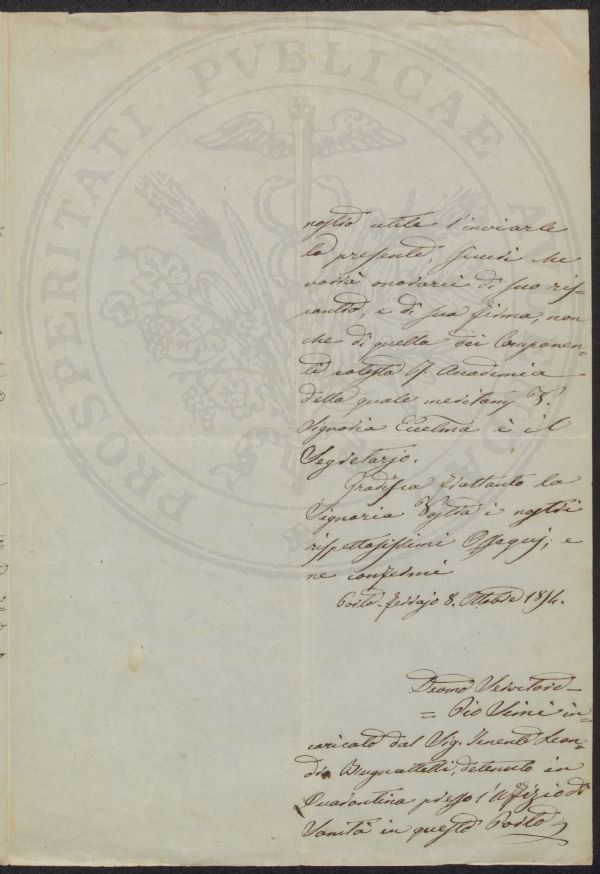 PROSPERITATI PVBLICAE
nostro utile l'inviarle
la presente, sicuri che
vorrà onorarci di suo ris-
contro, e di sua firma, non
che di quella dei Componen-
ti cotesta Accademia
della quale V.
Signoria Eccelma è il
Segretario.
Gradisca frattanto la
Signoria Vostra i nostri
rispettosissimi Ossequj; e
ne confermi
Porto-ferrajo 8. Ottobre
Devmo Servitore -
= Pio in-
caricato dal Sig. Tenente Lean-
dro detenuto in
Quarantina presso l'Uffizio di
Sanità in questo Porto